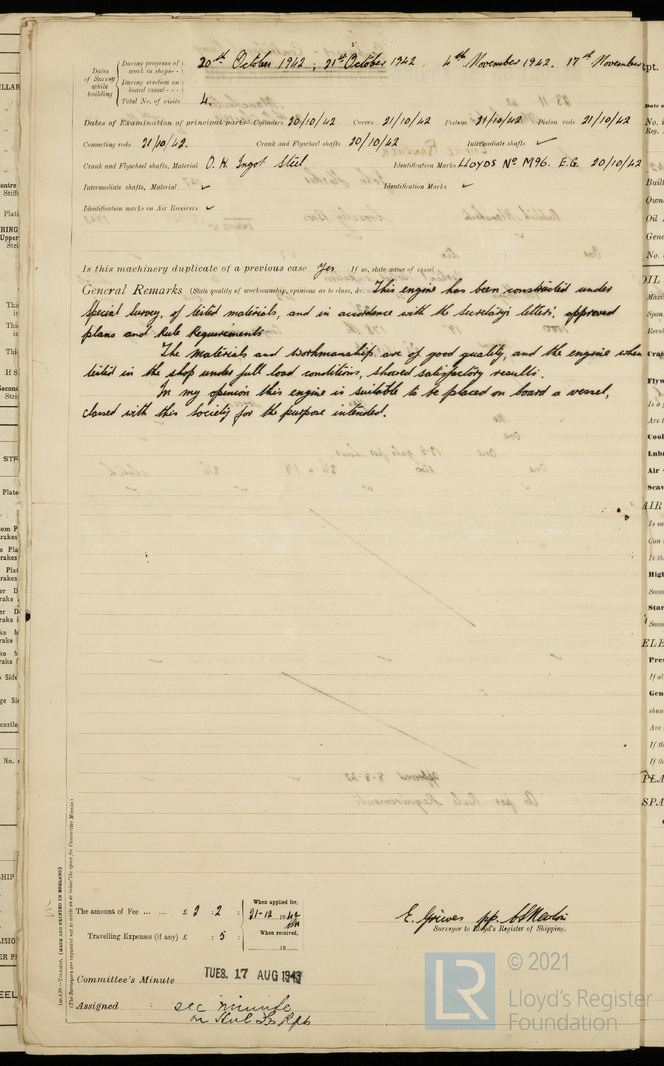 Dates of Survey while building
During progress of work in shops - - 20th October 1942, 21st October 1942, 4th November 1942. 17th November
During erection on board vessel - - -
Total No. of visits 4.
Dates of Examination of principal parts—Cylinders 20/10/42 Covers 21/10/42 Pistons 21/10/42 Piston rods 21/10/42
Connecting rods 21/10/42. Crank and Flywheel shafts 20/10/42 Intermediate shafts ✓
Crank and Flywheel shafts, Material O.H. Ingot Steel Identification Marks LLOYDS No M96. E.G. 20/10/42
Intermediate shafts, Material ✓ Identification Marks ✓
Identification marks on Air Receivers ✓
Is this machinery duplicate of a previous case Yes If so, state name of vessel
General Remarks (State quality of workmanship, opinions as to class, &c. This engine has been constructed under
Special Survey, of tested materials, and in accordance with the Secretary's letters, approved
plans and Rule Requirements
The materials and workmanship are of good quality, and the engine when
tested in the shop under full load conditions, showed satisfactory results.
In my opinion this engine is suitable to be placed on board a vessel,
classed with this society for the purpose intended.
The amount of Fee ... ... £ 2 : 2 : When applied for, 21-12 1942
Travelling Expenses (if any) £ : 5 : When received, 19
Surveyor to Lloyd's Register of Shipping.
Committee's Minute TUES. 17 AUG 1943
Assigned see minute
on
(MADE AND PRINTED IN ENGLAND)
(The Surveyors are requested not to write on or below the space for Committee Minute.)
LR
© 2021
Lloyd's Register
Foundation